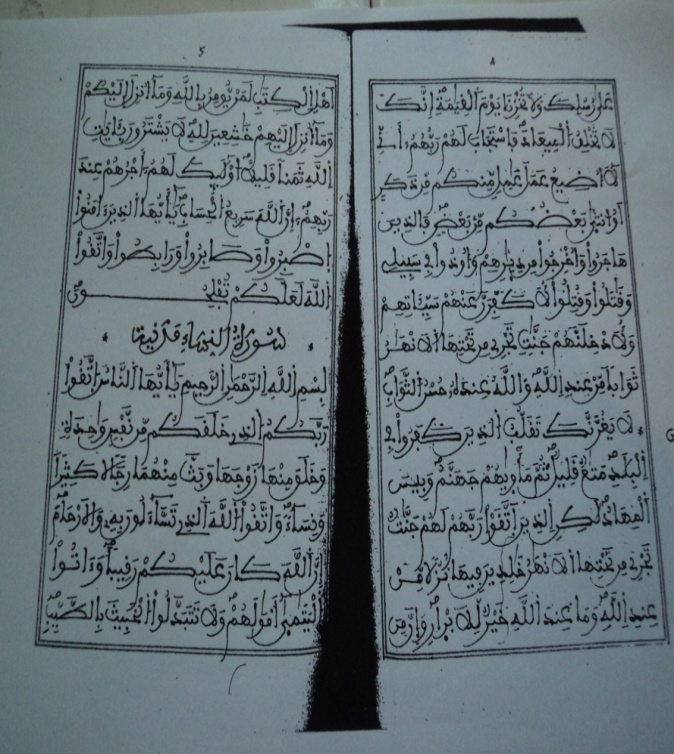 على رسلك ولا تخزنا يوم القيمة إنك
لا تخلف الميعاد فاستجاب لهم ربهم أني
لا أضيع عمل عمل منكم من ذكر
أو انثى بعضكم من بعض فالذين
هاجروا وأخرجوا من ديرهم وأوذوا في سبيلي
وقتلوا وقتلوا لأكفرن عنهم سيئاتهم
ولأدخلنهم جنت تجري من تحتها الأنهر
ثوابا من عند الله والله عنده حسن الثواب
لا يغرنك تقلب الذين كفروا في
البلد متع قليل ثم مأويهم جهنم وبيس
المهاد لكن الذين اتقوا ربهم لهم جنت
تجري من تحتها الأنهر خلدين فيها نزلا من
عند الله وما عند الله خير للأبرار وإن من
5
أهل الكتب لمن يومن بالله وما أنزل إليكم
وما أنزل إليهم خشعين لله لا يشترون بايت
الله ثمنا قليلا أوليك لهم أجرهم عند
ربهم إن الله سريع الحساب يأيها الذين ءامنوا
اصبروا وصابروا ورابطوا واتقوا
الله لعلكم تفلحون
سورة النساء مدنية
بسم الله الرحمن الرحيم يأيها الناس اتقوا
ربكم الذي خلقكم من نفس وحدة
وخلق منها زوجها وبث منهما رجالا كثيرا
ونساء واتقوا الله الذي تساءلون به والارحام
إن الله كان عليكم رقيبا وءاتوا
اليتمى أمولهم ولا تتبدلوا الخبيث بالطيب